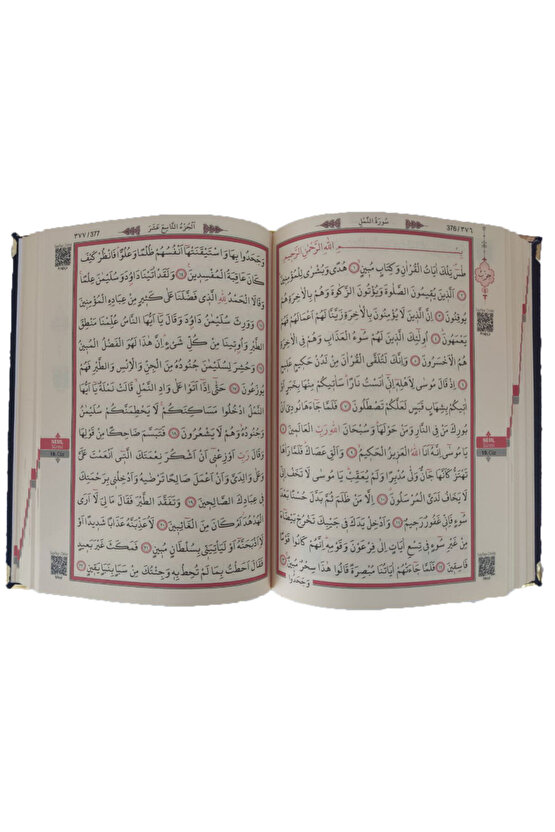 376/٣٧٦
سُورَةُ النَّمْلِ
بِسْمِ اللّٰهِ الرَّحْمٰنِ الرَّحِيمِ
طٰسٓ تِلْكَ اٰيَاتُ الْقُرْاٰنِ وَكِتَابٍ مُبٖينٍ ﴿١﴾ هُدًى وَبُشْرٰى لِلْمُؤْمِنٖينَ
﴿٢﴾ اَلَّذٖينَ يُقٖيمُونَ الصَّلٰوةَ وَيُؤْتُونَ الزَّكٰوةَ وَهُمْ بِالْاٰخِرَةِ هُمْ
يُوقِنُونَ ﴿٣﴾ اِنَّ الَّذٖينَ لَا يُؤْمِنُونَ بِالْاٰخِرَةِ زَيَّنَّا لَهُمْ اَعْمَالَهُمْ فَهُمْ
يَعْمَهُونَ ﴿٤﴾ اُولٰٓئِكَ الَّذٖينَ لَهُمْ سُٓوءُ الْعَذَابِ وَهُمْ فِي الْاٰخِرَةِ
هُمُ الْاَخْسَرُونَ ﴿٥﴾ وَاِنَّكَ لَتُلَقَّى الْقُرْاٰنَ مِنْ لَدُنْ حَكٖيمٍ عَلٖيمٍ
﴿٦﴾ اِذْ قَالَ مُوسٰى لِاَهْلِهٖٓ اِنّٖٓي اٰنَسْتُ نَارًا سَاٰتٖيكُمْ مِنْهَا بِخَبَرٍ اَوْ
اٰتٖيكُمْ بِشِهَابٍ قَبَسٍ لَعَلَّكُمْ تَصْطَلُونَ ﴿٧﴾ فَلَمَّا جَٓاءَهَا نُودِيَ اَنْ
بُورِكَ مَنْ فِي النَّارِ وَمَنْ حَوْلَهَا وَسُبْحَانَ اللّٰهِ رَبِّ الْعَالَمٖينَ ﴿٨﴾
يَا مُوسٰٓى اِنَّهُٓ اَنَا اللّٰهُ الْعَزٖيزُ الْحَكٖيمُ ﴿٩﴾ وَاَلْقِ عَصَاكَ فَلَمَّا رَاٰهَا
تَهْتَزُّ كَاَنَّهَا جَٓانٌّ وَلّٰى مُدْبِرًا وَلَمْ يُعَقِّبْ يَا مُوسٰى لَا تَخَفْ اِنّٖي
لَا يَخَافُ لَدَيَّ الْمُرْسَلُونَ ﴿١٠﴾ اِلَّا مَنْ ظَلَمَ ثُمَّ بَدَّلَ حُسْنًا بَعْدَ
سُٓوءٍ فَاِنّٖي غَفُورٌ رَحٖيمٌ ﴿١١﴾ وَاَدْخِلْ يَدَكَ فٖي جَيْبِكَ تَخْرُجْ بَيْضَٓاءَ
مِنْ غَيْرِ سُٓوءٍ فٖي تِسْعِ اٰيَاتٍ اِلٰى فِرْعَوْنَ وَقَوْمِهٖ اِنَّهُمْ كَانُوا قَوْمًا
فَاسِقٖينَ ﴿١٢﴾ فَلَمَّا جَٓاءَتْهُمْ اٰيَاتُنَا مُبْصِرَةً قَالُوا هٰذَا سِحْرٌ مُبٖينٌ ﴿١٣﴾
وَجَحَدُوا
NEML
19. Cüz
اَلْجُزْءُ التَّاسِعَ عَشَرَ
٣٧٧/377
وَجَحَدُوا بِهَا وَاسْتَيْقَنَتْهَٓا اَنْفُسُهُمْ ظُلْمًا وَعُلُوًّا فَانْظُرْ كَيْفَ
كَانَ عَاقِبَةُ الْمُفْسِدٖينَ ﴿١٤﴾ وَلَقَدْ اٰتَيْنَا دَاوُ۫دَ وَسُلَيْمٰنَ عِلْمًا
وَقَالَا الْحَمْدُ لِلّٰهِ الَّذٖي فَضَّلَنَا عَلٰى كَثٖيرٍ مِنْ عِبَادِهِ الْمُؤْمِنٖينَ
﴿١٥﴾ وَوَرِثَ سُلَيْمٰنُ دَاوُ۫دَ وَقَالَ يَٓا اَيُّهَا النَّاسُ عُلِّمْنَا مَنْطِقَ
الطَّيْرِ وَاُوتٖينَا مِنْ كُلِّ شَيْءٍ اِنَّ هٰذَا لَهُوَ الْفَضْلُ الْمُبٖينُ
﴿١٦﴾ وَحُشِرَ لِسُلَيْمٰنَ جُنُودُهُ مِنَ الْجِنِّ وَالْاِنْسِ وَالطَّيْرِ فَهُمْ
يُوزَعُونَ ﴿١٧﴾ حَتّٰٓى اِذَٓا اَتَوْا عَلٰى وَادِ النَّمْلِ قَالَتْ نَمْلَةٌ يَٓا اَيُّهَا
النَّمْلُ ادْخُلُوا مَسَاكِنَكُمْ لَا يَحْطِمَنَّكُمْ سُلَيْمٰنُ
وَجُنُودُهُ وَهُمْ لَا يَشْعُرُونَ ﴿١٨﴾ فَتَبَسَّمَ ضَاحِكًا مِنْ قَوْلِهَا
وَقَالَ رَبِّ اَوْزِعْنٖٓي اَنْ اَشْكُرَ نِعْمَتَكَ الَّتٖٓي اَنْعَمْتَ عَلَيَّ
وَعَلٰى وَالِدَيَّ وَاَنْ اَعْمَلَ صَالِحًا تَرْضٰيهُ وَاَدْخِلْنٖي بِرَحْمَتِكَ
فٖي عِبَادِكَ الصَّالِحٖينَ ﴿١٩﴾ وَتَفَقَّدَ الطَّيْرَ فَقَالَ مَا لِيَ لَٓا اَرَى
الْهُدْهُدَ اَمْ كَانَ مِنَ الْغَٓائِبٖينَ ﴿٢٠﴾ لَاُعَذِّبَنَّهُ عَذَابًا شَدٖيدًا اَوْ
لَاَاذْبَحَنَّهُٓ اَوْ لَيَاْتِيَنّٖي بِسُلْطَانٍ مُبٖينٍ ﴿٢١﴾ فَمَكَثَ غَيْرَ بَعٖيدٍ
فَقَالَ اَحَطْتُ بِمَا لَمْ تُحِطْ بِهٖ وَجِئْتُكَ مِنْ سَبَاٍ بِنَبَاٍ يَقٖينٍ ﴿٢٢﴾
NEML
19. Cüz